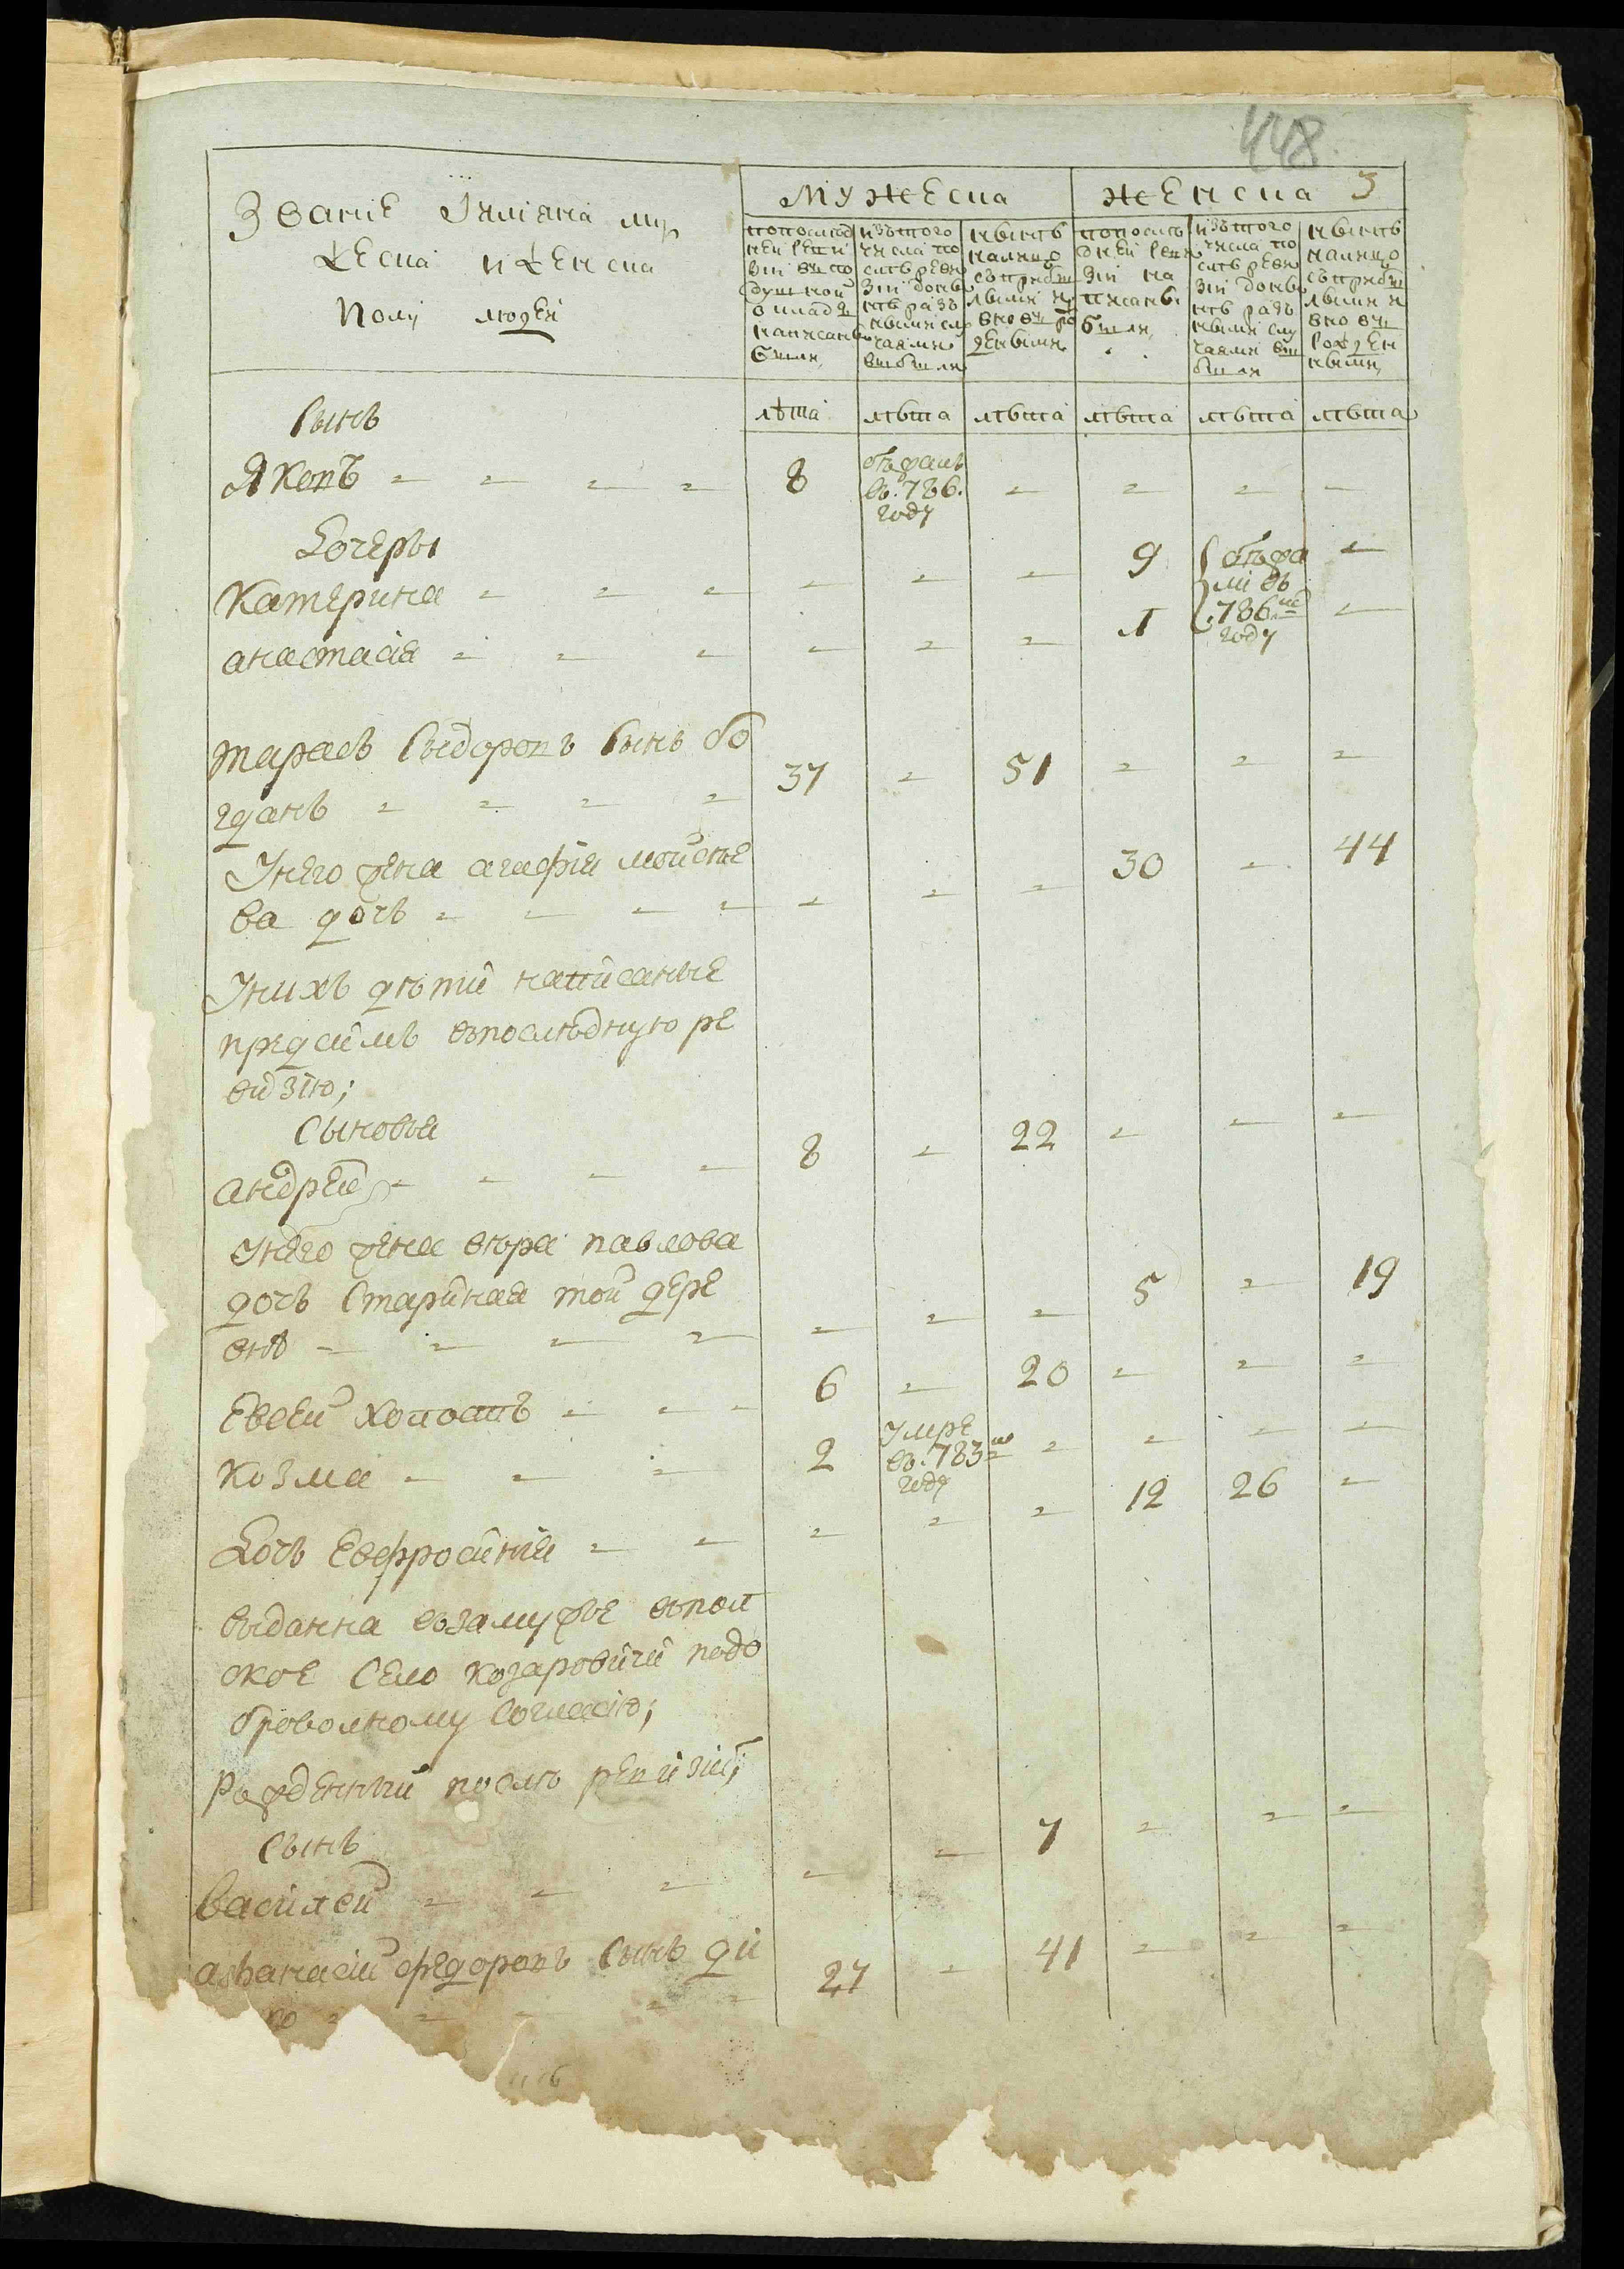 448
3
Звание Имяна муж
жеска и женска
полу людей
мужеска
женска
попослед
ней реви
зии въ по
душной
окладъ
написаны
были
изътого
числа по
слѣ реви
зии доны
нѣ разъ
ными слу
чаями
выбыли
нынѣ
налицо
съприбы
лыми и
вновь ро
ждеными
попослѣ
дней реви
зии на
писаны
были
изътого
числа по
слѣ реви
зии доны
нѣ разъ
ными слу
чаями вы
были
нынѣ
налицо
съприбы
лыми и
вновь
рожден
ными
лѣта лѣта лѣта лѣта лѣта лѣта
Сынъ
Яковъ - - - - 8 бѣжалъ - - - -
въ .786.
году
Дочеры
Катерина - - - - - - 9 бѣжа -
ли въ
анастасія - - - - - - 1 .786мъ -
году
тарасъ Сыдоровъ Сынъ бо
гданъ - - - - 37 - 51 - - -
Унего жена агафія мойсѣе
ва дочъ - - - - - - - 30 - 44
Унихъ дѣти написаные
предсимъ впослѣдную ре
визію;
Сыновья
андрей - - - - 8 - 22 - - -
Унего жена вѣра павлова
дочъ Старинная той дере
внѣ - - - - - - - 5 - 19
Евсей холостъ - - - 6 - 20 - - -
Козма - - - 2 Умре - - - -
въ .783мъ
году
Дочъ Евфросинія - - - - - 12 26 -
выданна въ замужъе въпол
ское Село козаровичи подо
броволному Согласію;
Рожденный послѣ ревизіи;
Сынъ
василей - - - - - 7 - - -
афанасій федоровъ Сынъ ди
27 - 41 - - -